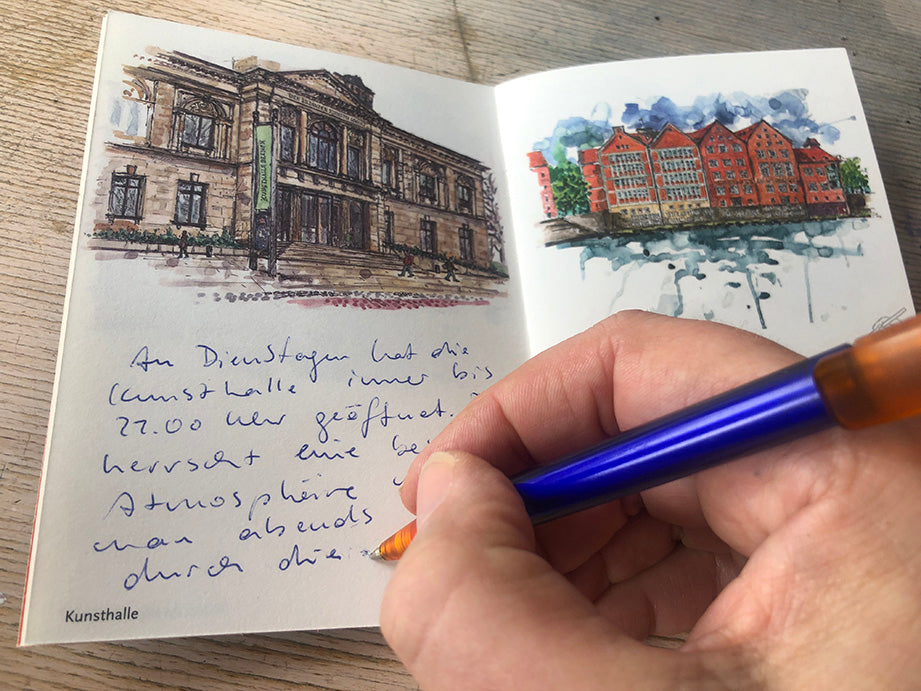 An Dienstagen hat die
Kunsthalle immer bis
22.00 Uhr geöffnet.
herrscht eine
Atmosphäre
man abends
durch die
Kunsthalle